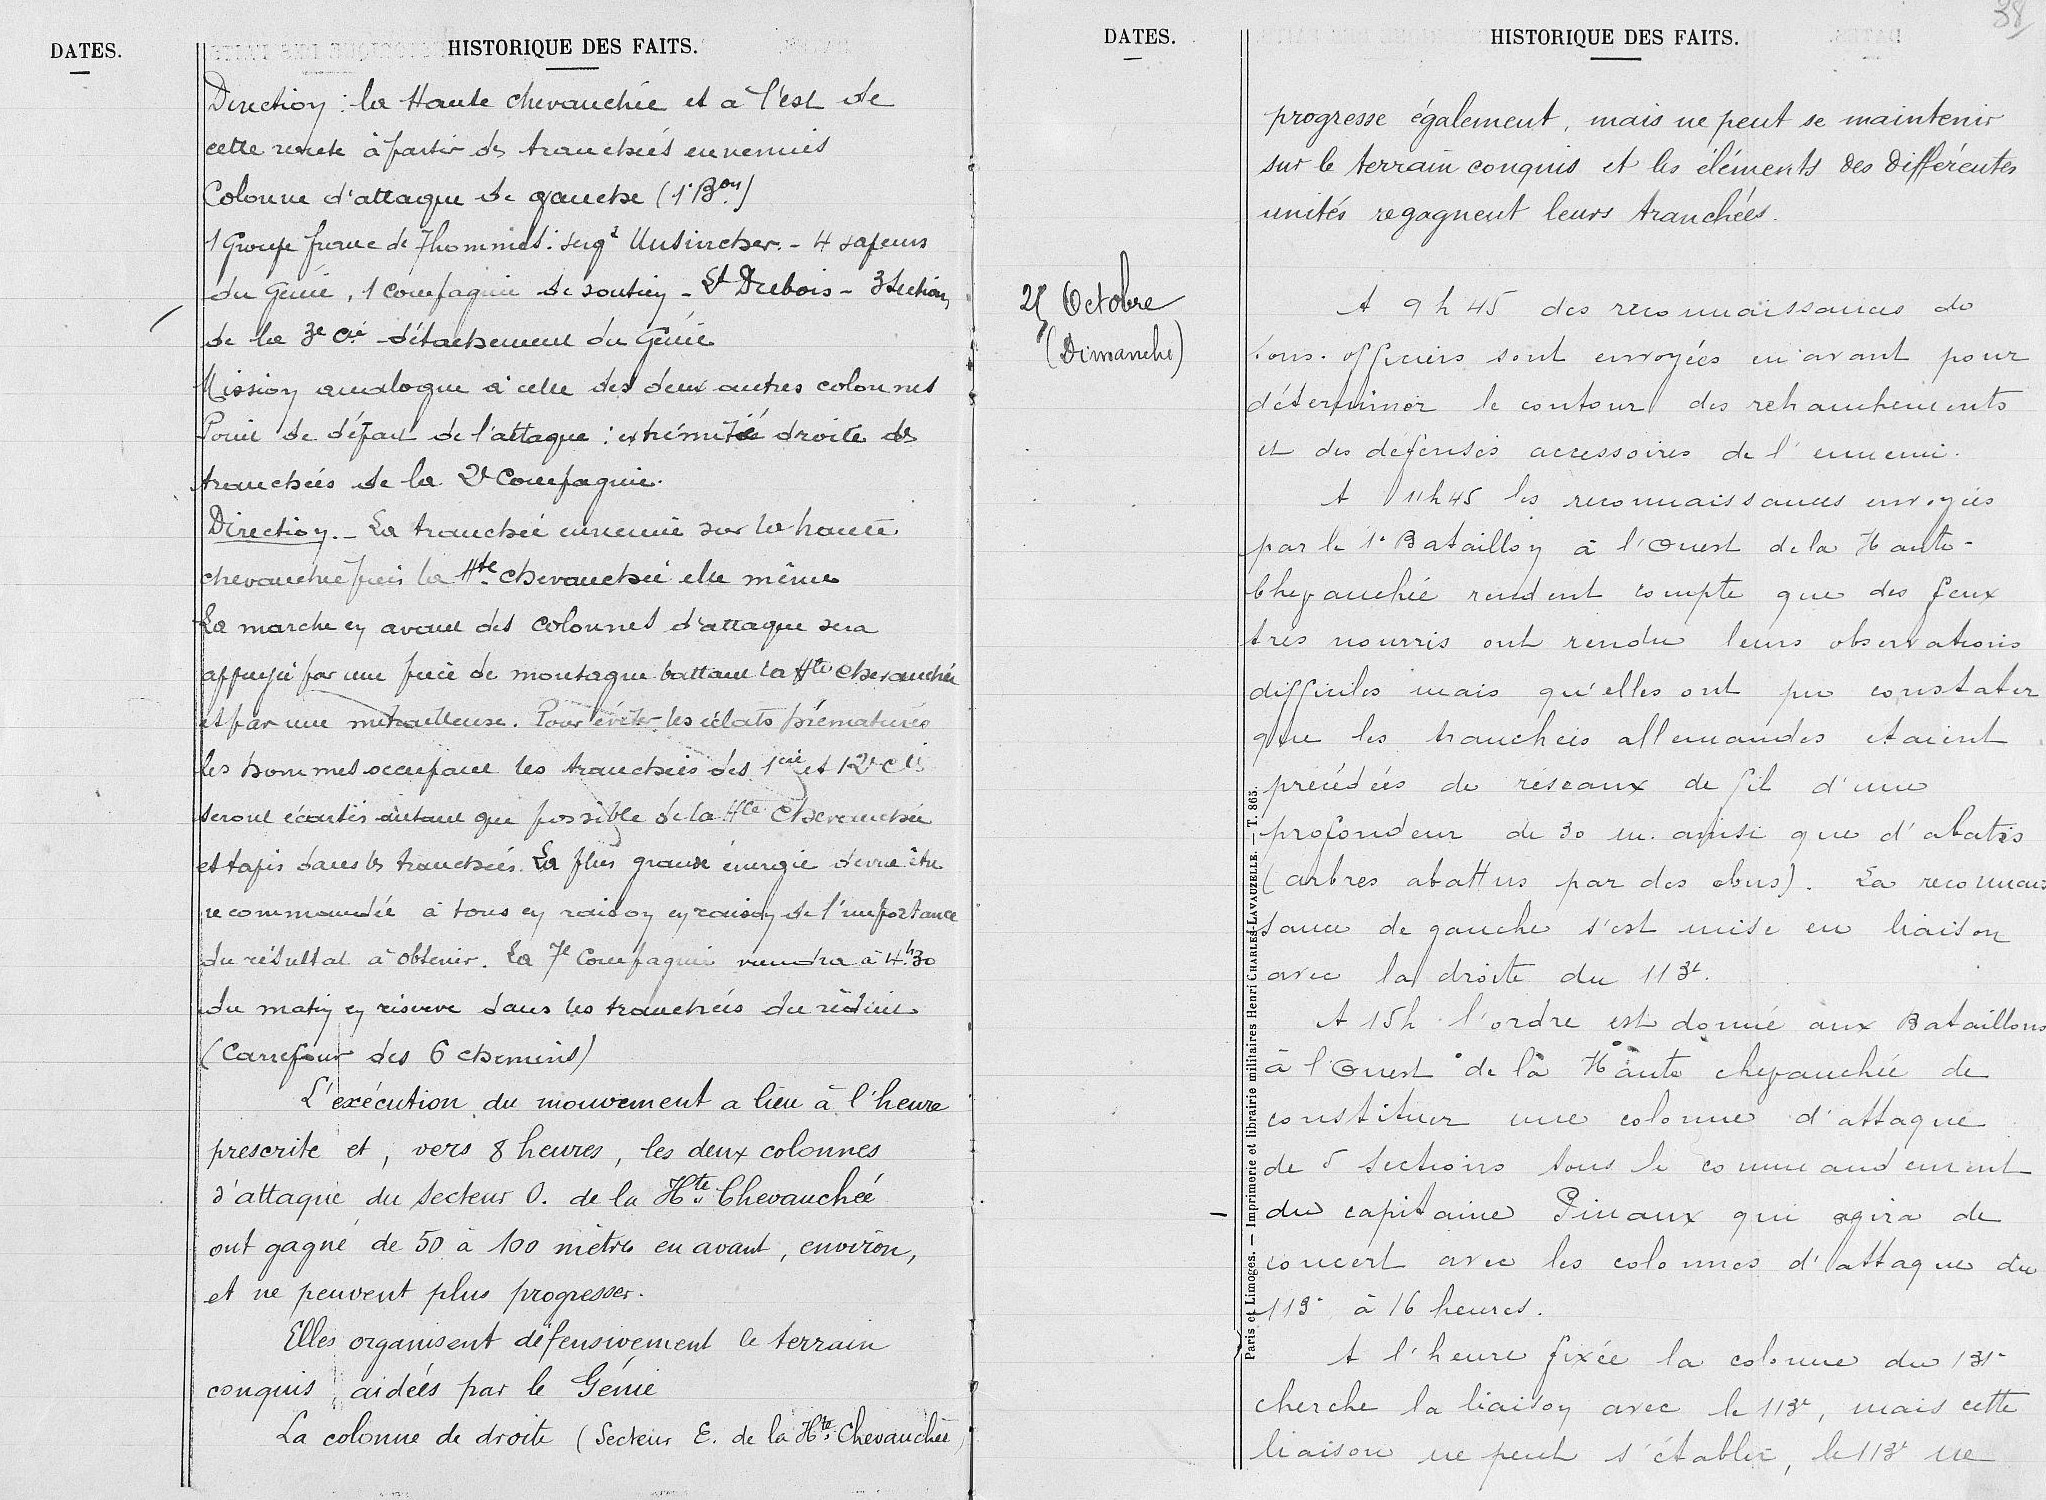 DATES.
HISTORIQUE DES FAITS.
Direction : la Haute chevauchée et à l'est de
cette route à partir des tranchées ennemies
Colonne d'attaque de gauche (1er Bon)
1 Groupe franc de 7 hommes : sergt - 4 sapeurs
du Génie, 1 compagnie de soutien - Lt Dubois - 3 Sections
de la 3e Cie détachement du Génie
Mission analogue à celle des deux autres colonnes
Point de départ de l'attaque : extrémité droite des
tranchées de la 2e Compagnie.
Direction. - La tranchée ennemie sur la haute
chevauchée puis la Hte chevauchée elle même
La marche en avant des colonnes d'attaque sera
appuyée par une pièce de montagne battant la Hte chevauchée
et par une mitrailleuse. Pour éviter les éclats prématurés
les hommes occupant les tranchées des 1ère et 2e Cies
seront écartés autant que possible de la Hte Chevauchée
et tapis dans les tranchées. La plus grande énergie devra être
recommandée à tous en raison en raison de l'importance
du résultat à obtenir. La 7e Compagnie viendra à 4h30
du matin en réserve dans les tranchées du réduit
(Carrefour des 6 chemins)
L'exécution du mouvement a lieu à l'heure
prescrite et, vers 8 heures, les deux colonnes
d'attaque du secteur O. de la Hte Chevauchée
ont gagné de 50 à 100 mètres en avant, environ,
et ne peuvent plus progresser.
Elles organisent défensivement le terrain
conquis, aidées par le Génie
La colonne de droite (Secteur E. de la Hte Chevauchée)
38
DATES.
HISTORIQUE DES FAITS.
progresse également, mais ne peut se maintenir
sur le terrain conquis et les éléments des différentes
unités regagnent leurs tranchées.
25 Octobre
(Dimanche)
A 9 h 45 des reconnaissances de
sous-officiers sont envoyées en avant pour
déterminer le contour des retranchements
et des défenses accessoires de l'ennemi.
A 11h45 les reconnaissances envoyées
par le 1er Bataillon à l'Ouest de la Haute-
Chevauchée rendent compte que des feux
très nourris ont rendu leurs observations
difficiles mais qu'elles ont pu constater
que les tranchées allemandes étaient
précédées de réseaux de fil d'une
profondeur de 30 m. ainsi que d'abatis
(arbres abattus par des obus). La reconnais
sance de gauche s'est mise en liaison
avec la droite du 113e.
A 15h l'ordre est donné aux Bataillons
à l'Ouest de la Haute chevauchée de
constituer une colonne d'attaque
de 5 sections sous le commandement
du capitaine Pinaux qui agira de
concert avec les colonnes d'attaque du
113e à 16 heures.
A l'heure fixée la colonne du 131e
cherche la liaison avec le 113e, mais cette
liaison ne peut s'établir, le 113e ne
Paris et Limoges. — Imprimerie et librairie militaires Henri CHARLES-LAVAUZELLE. — T. 865.